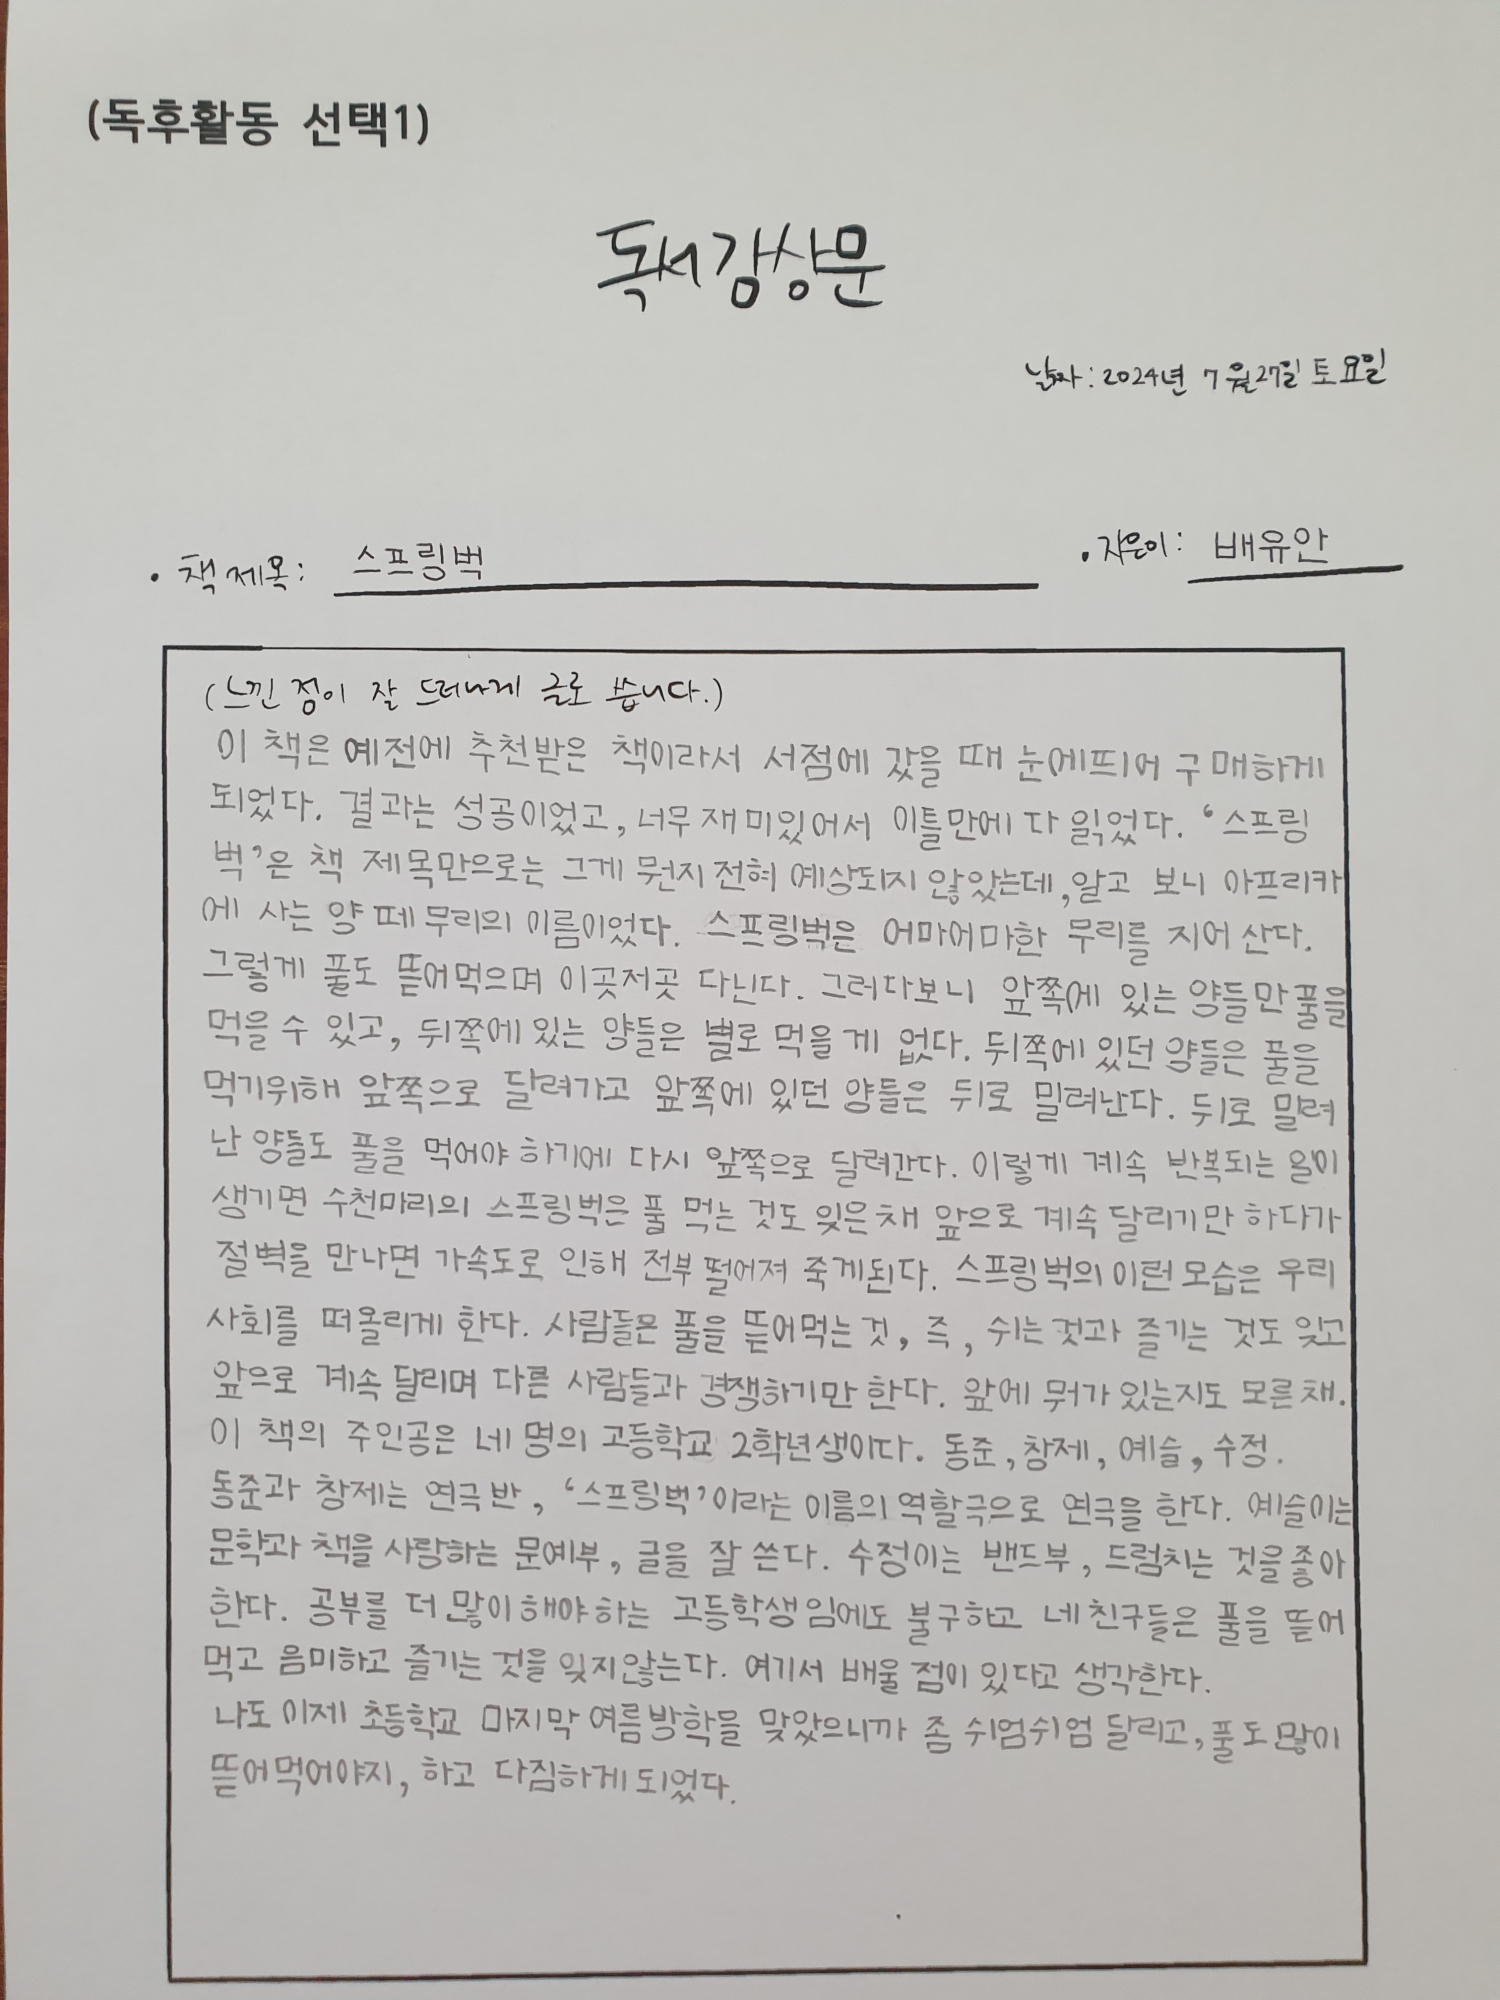 (독후활동 선택1)
독서감상문
날짜: 2024년 7월27일 토요일
• 책 제목: 스프링벅
• 지은이: 배유안
(느낀 점이 잘 드러나게 글로 씁니다.)
이 책은 예전에 추천받은 책이라서 서점에 갔을 때 눈에띄어 구매하게
되었다. 결과는 성공이었고, 너무 재미있어서 이틀만에 다 읽었다. ‘스프링
벅’은 책 제목만으로는 그게 뭔지 전혀 예상되지 않았는데, 알고 보니 아프리카
에 사는 양 떼 무리의 이름이었다. 스프링벅은 어마어마한 무리를 지어 산다.
그렇게 풀도 뜯어먹으며 이곳저곳 다닌다. 그러다보니 앞쪽에 있는 양들만 풀을
먹을 수 있고, 뒤쪽에 있는 양들은 별로 먹을 게 없다. 뒤쪽에 있던 양들은 풀을
먹기위해 앞쪽으로 달려가고 앞쪽에 있던 양들은 뒤로 밀려난다. 뒤로 밀려
난 양들도 풀을 먹어야 하기에 다시 앞쪽으로 달려간다. 이렇게 계속 반복되는 일이
생기면 수천마리의 스프링벅은 풀 먹는 것도 잊은채 앞으로 계속 달리기만 하다가
절벽을 만나면 가속도로 인해 전부 떨어져 죽게된다. 스프링벅의 이런 모습은 우리
사회를 떠올리게 한다. 사람들은 풀을 뜯어먹는 것, 즉, 쉬는 것과 즐기는 것도 잊고
앞으로 계속 달리며 다른 사람들과 경쟁하기만 한다. 앞에 뭐가 있는지도 모른채.
이 책의 주인공은 네 명의 고등학교 2학년생이다. 동준, 창제, 예슬, 수정.
동준과 창제는 연극반, ‘스프링벅’이라는 이름의 역할극으로 연극을 한다. 예슬이는
문학과 책을 사랑하는 문예부, 글을 잘 쓴다. 수정이는 밴드부, 드럼치는 것을 좋아
한다. 공부를 더 많이 해야 하는 고등학생임에도 불구하고 네 친구들은 풀을 뜯어
먹고 음미하고 즐기는 것을 잊지않는다. 여기서 배울 점이 있다고 생각한다.
나도 이제 초등학교 마지막 여름방학을 맞았으니까 좀 쉬엄쉬엄 달리고, 풀도 많이
뜯어먹어야지, 하고 다짐하게 되었다.